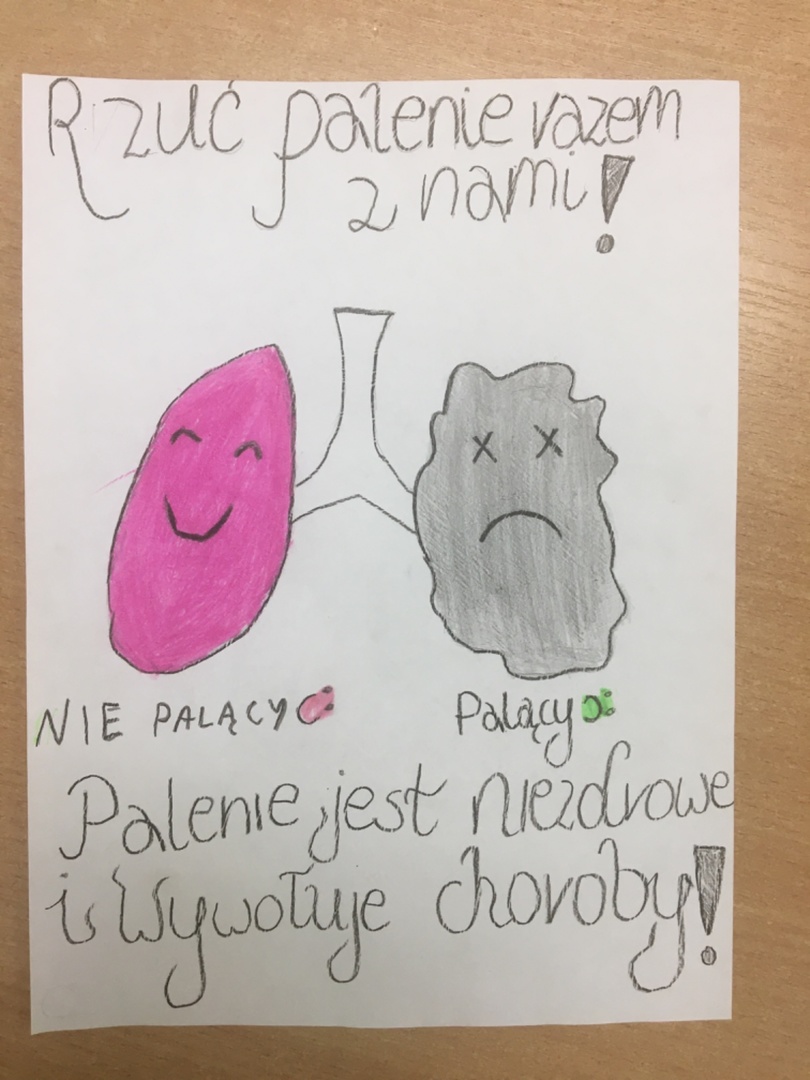 Rzuć palenie razem
z nami!
NIE PALĄCY
Palący
Palenie jest niezdrowe
i wywołuje choroby!